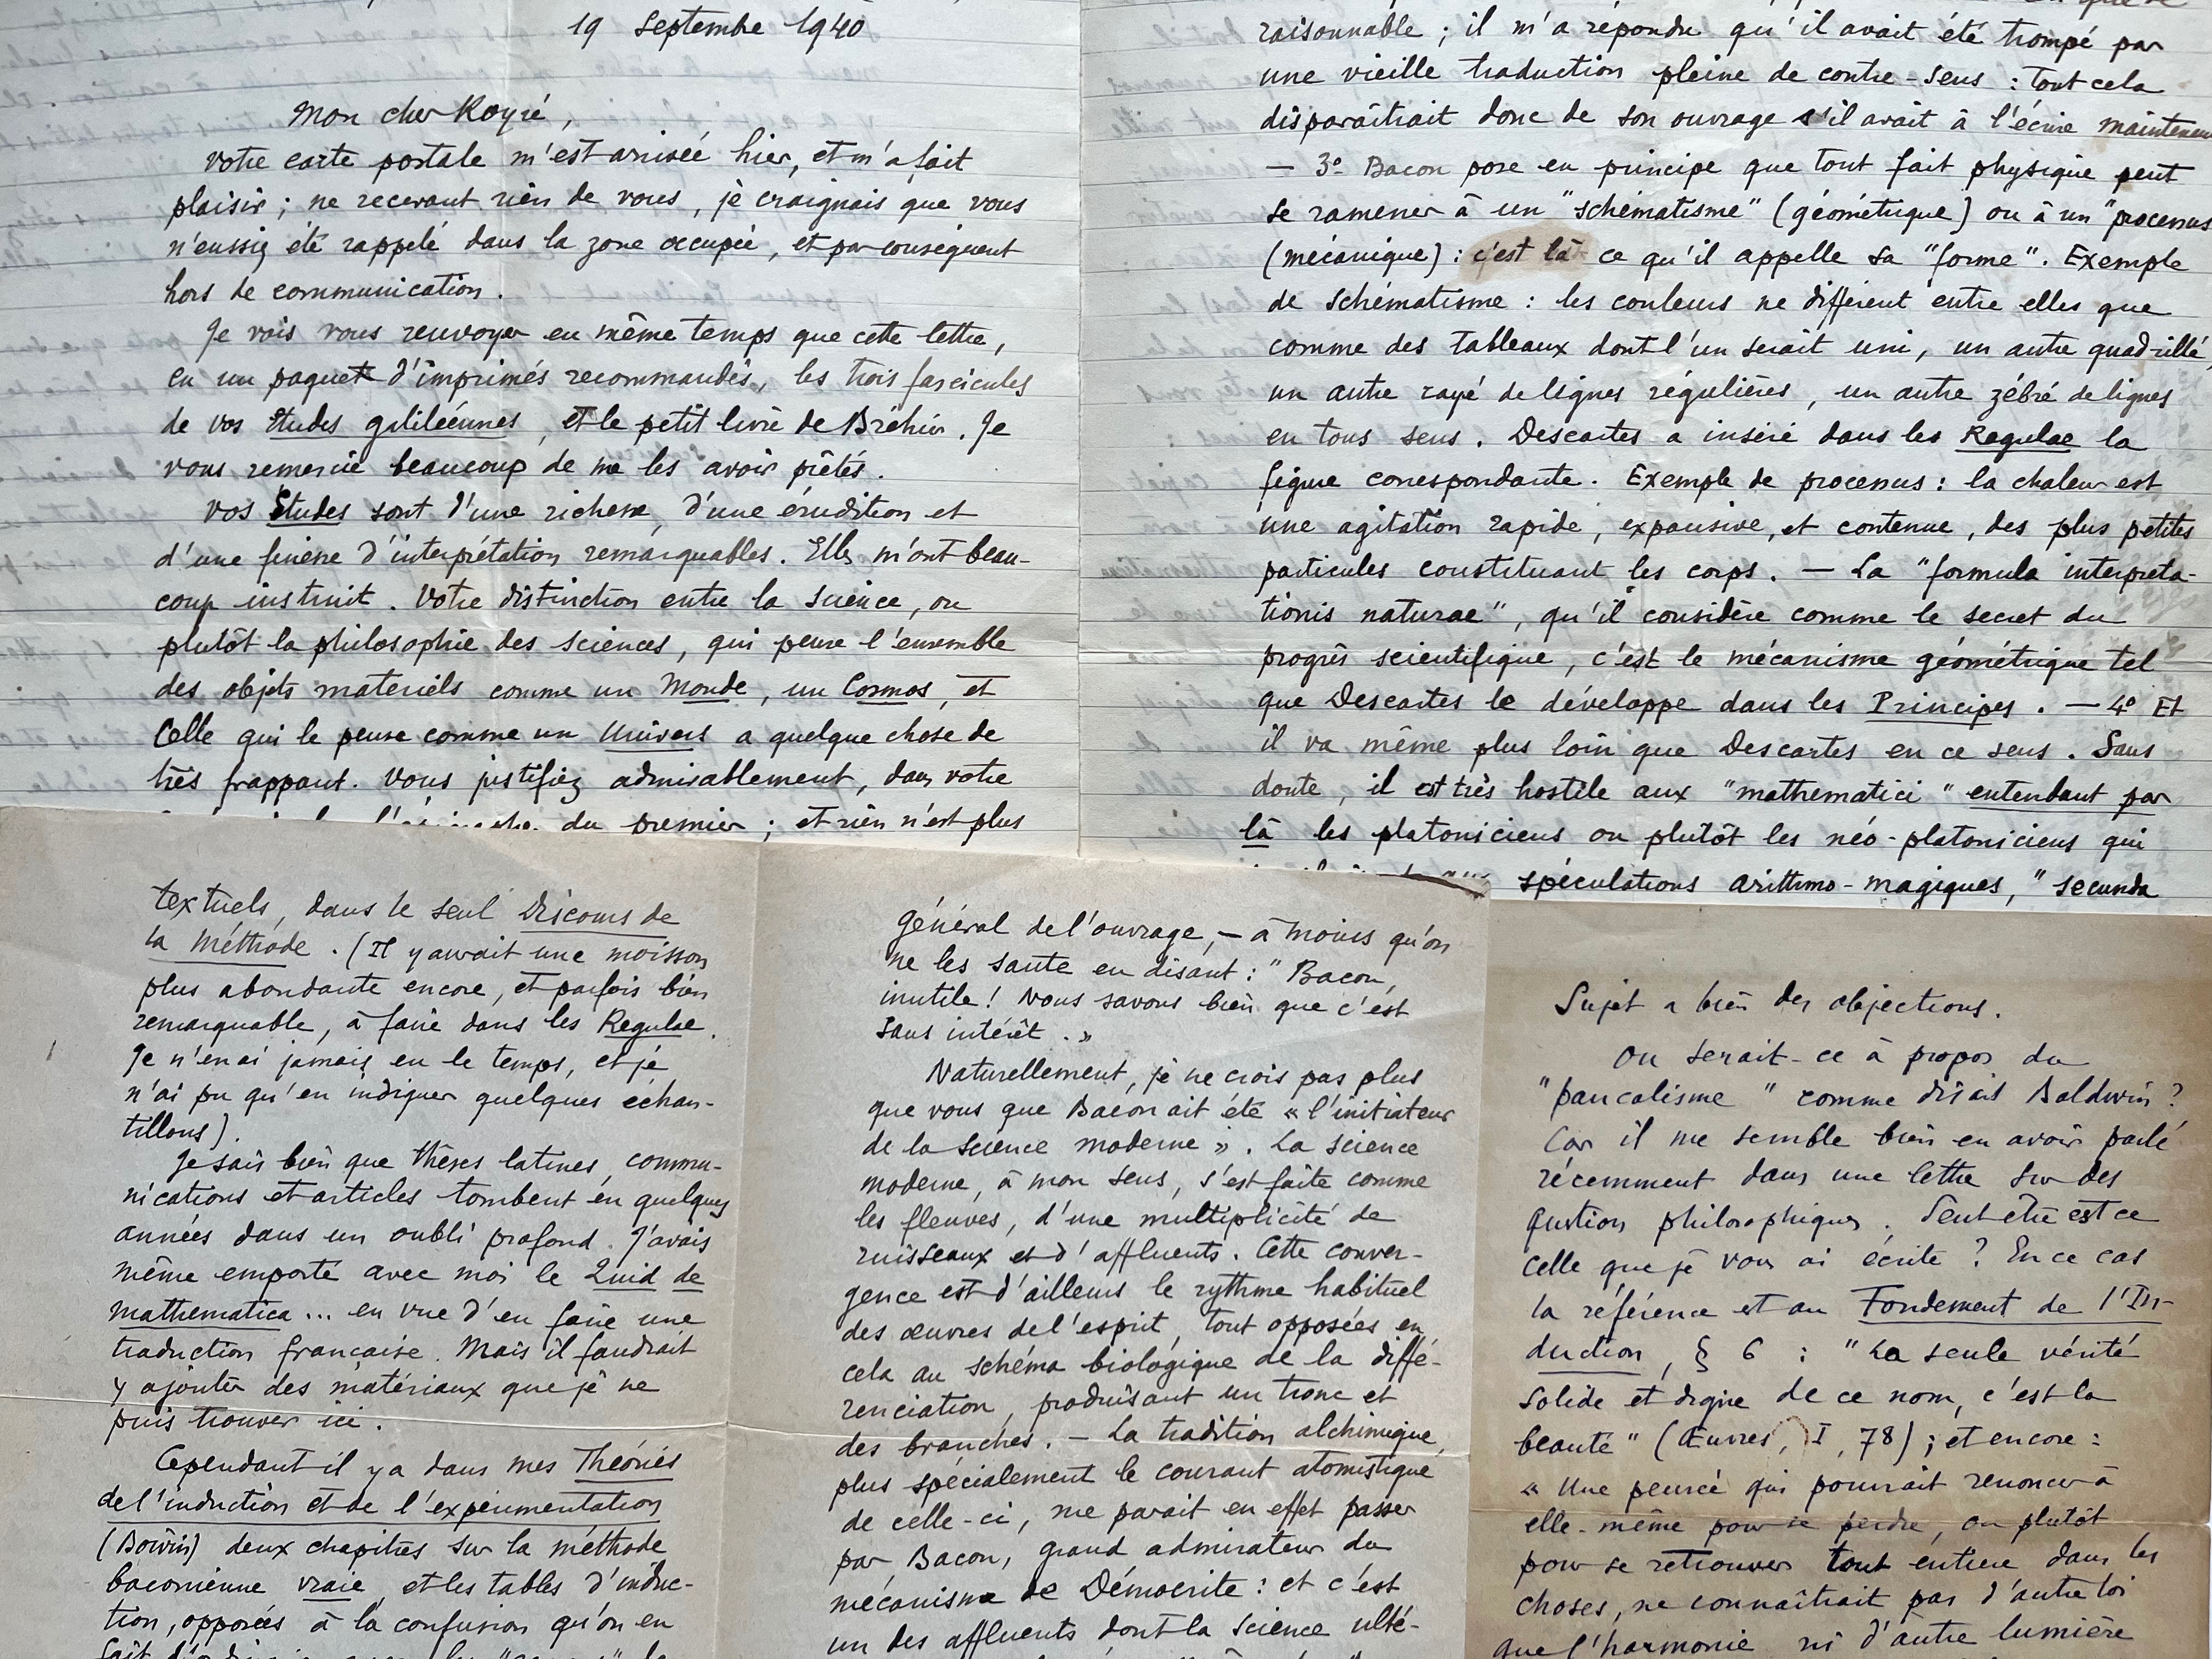 19 Septembre 1940
Mon cher Koyré,
Votre carte postale m'est arrivée hier, et m'a fait
plaisir ; ne recevant rien de vous, je craignais que vous
n'eussiez été rappelé dans la zone occupée, et par conséquent
hors de communication.
Je vais vous renvoyer en même temps que cette lettre,
en un paquet d'imprimés recommandés, les trois fascicules
de vos Etudes galiléennes, et le petit livre de Bréhier. Je
vous remercie beaucoup de me les avoir prêtés.
Vos Etudes sont d'une richesse, d'une érudition et
d'une finesse d'interprétation remarquables. Elles m'ont beau-
coup instruit. Votre distinction entre la science, ou
plutôt la philosophie des sciences, qui pense l'ensemble
des objets matériels comme un Monde, un Cosmos, et
Celle qui le pense comme un Univers a quelque chose de
très frappant. Vous justifiez admirablement, dans votre
du premier ; et rien n'est plus
raisonnable ; il m'a répondu qu'il avait été trompé par
une vieille traduction pleine de contre-sens : tout cela
disparaîtrait donc de son ouvrage s'il avait à l'écrire maintenant
— 3° Bacon pose en principe que tout fait physique peut
se ramener à un "schématisme" (géométrique) ou à un "processus
(mécanique) : c'est là ce qu'il appelle sa "forme". Exemple
de schématisme : les couleurs ne diffèrent entre elles que
comme des tableaux dont l'un serait uni, un autre quadrillé,
un autre rayé de lignes régulières, un autre zébré de lignes
en tous sens. Descartes a inséré dans les Regulae la
figure correspondante. Exemple de processus : la chaleur est
une agitation rapide, expansive, et contenue, des plus petites
particules constituant les corps. — La "formula interpreta-
tionis naturae", qu'il considère comme le secret du
progrès scientifique, c'est le mécanisme géométrique tel
que Descartes le développe dans les Principes. — 4° Et
il va même plus loin que Descartes en ce sens. Sans
doute, il est très hostile aux "mathematici" entendant par
là les platoniciens ou plutôt les néo-platoniciens qui
spéculations arithmo-magiques, "secunda
textuels, dans le seul Discours de
la Méthode. (Il y aurait une moisson
plus abondante encore, et parfois bien
remarquable, à faire dans les Regulae.
Je n'en ai jamais eu le temps, et je
n'ai pu qu'en indiquer quelques échan-
tillons).
Je sais bien que thèses latines, commu-
nications et articles tombent en quelques
années dans un oubli profond. J'avais
même emporté avec moi le Quid de
Mathematica... en vue d'en faire une
traduction française. Mais il faudrait
y ajouter des matériaux que je ne
puis trouver ici.
Cependant il y a dans mes Théories
de l'induction et de l'expérimentation
(Boivin) deux chapitres sur la méthode
baconienne vraie, et les tables d'induc-
tion, opposées à la confusion qu'on en
général de l'ouvrage, — à moins qu'on
ne les saute en disant : "Bacon,
inutile ! Nous savons bien que c'est
sans intérêt. »
Naturellement, je ne crois pas plus
que vous que Bacon ait été « l'initiateur
de la science moderne ». La science
moderne, à mon sens, s'est faite comme
les fleuves, d'une multiplicité de
ruisseaux et d'affluents. Cette conver-
gence est d'ailleurs le rythme habituel
des œuvres de l'esprit, tout opposées en
cela au schéma biologique de la diffé-
renciation, produisant un tronc et
des branches. — La tradition alchimique,
plus spécialement le courant atomistique
de celle-ci, me parait en effet passer
par Bacon, grand admirateur du
mécanisme de Démocrite : et c'est
un des affluents dont la science ulté-
Sujet a bien des objections.
Ou serait-ce à propos du
"pancalisme" comme disait Baldwin ?
Car il me semble bien en avoir parlé
récemment dans une lettre sur des
question philosophiques. Peut être est ce
celle que je vous ai écrite ? En ce cas
la référence et au Fondement de l'In-
duction, § 6 : "La seule vérité
solide et digne de ce nom, c'est la
beauté" (Œuvres, I, 78) ; et encore :
« Une pensée qui pourrait renoncer à
elle-même pour se perdre, ou plutôt
pour se retrouver tout entière dans les
choses, ne connaîtrait pas d'autre loi
que l'harmonie ni d'autre lumière